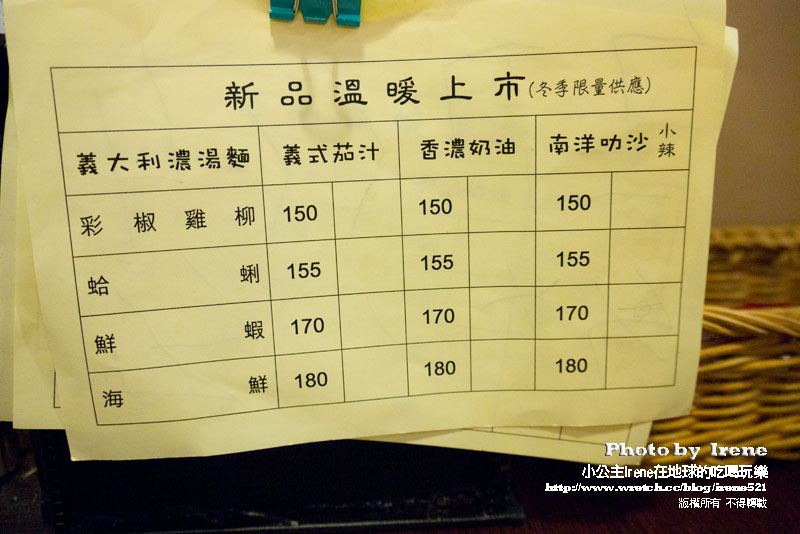 新品溫暖上市(冬季限量供應)
義大利濃湯麵 義式茄汁 香濃奶油 南洋叻沙 小辣
彩椒雞柳 150 150 150
蛤蜊 155 155 155
鮮蝦 170 170 170
海鮮 180 180 180
Photo by Irene
小公主Irene在地球的吃喝玩樂
http://www.wretch.cc/blog/irene521
版權所有 不得轉載